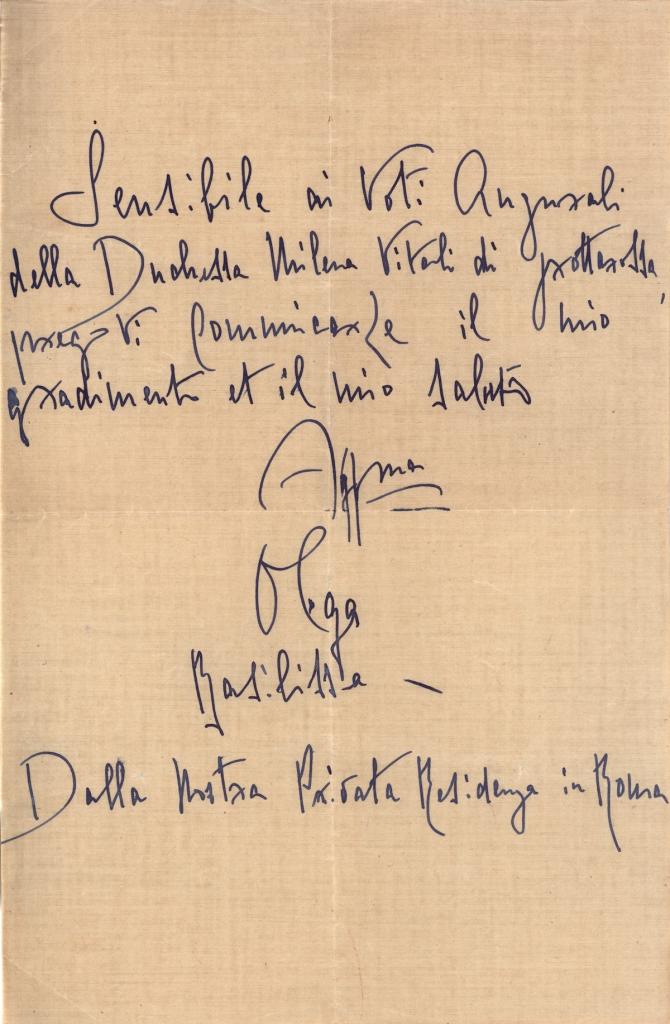 Sensibile ai Voti Augurali
della Duchessa Milena Vitali di grottarossa,
pregoVi Communicarle il mio
gradimento et il mio saluto
Aff.ma
Olga
Basilissa –
Dalla Nostra Privata Residenza in Roma